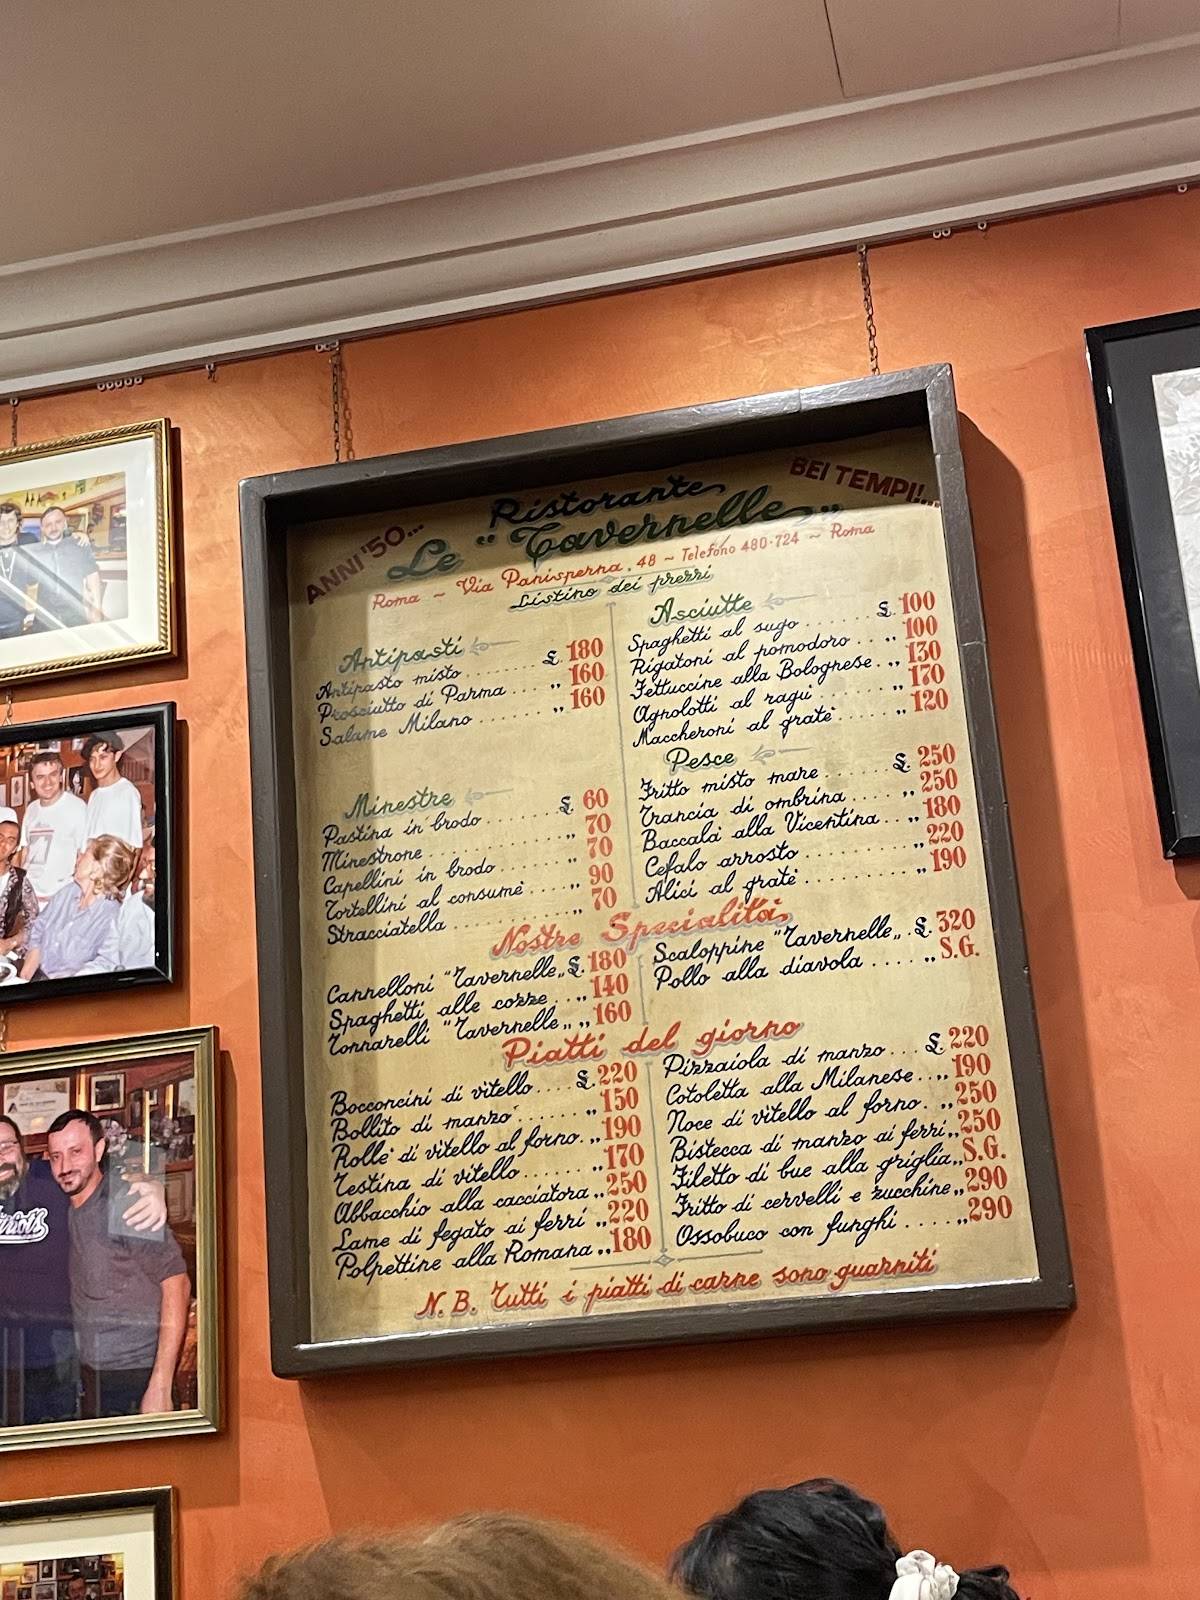 ANNI '50...
BEI TEMPI!...
Ristorante
Le "Tavernelle"
Roma ~ Via Panisperna, 48 ~ Telefono 480·724 ~ Roma
Listino dei prezzi
Antipasti
Antipasto misto ........ £. 180
Prosciutto di Parma .... „ 160
Salame Milano ....... „ 160
Minestre
Pastina in brodo ........ £. 60
Minestrone ............... „ 70
Capellini in brodo ....... „ 70
Tortellini al consumè .... „ 90
Stracciatella ............ „ 70
Asciutte
Spaghetti al sugo ........ £. 100
Rigatoni al pomodoro ... „ 100
Fettuccine alla Bolognese .. „ 130
Agnolotti al ragù ....... „ 170
Maccheroni al gratè ...... „ 120
Pesce
Fritto misto mare ....... £. 250
Trancia di ombrina ..... „ 250
Baccalà alla Vicentina .. „ 180
Cefalo arrosto .......... „ 220
Alici al gratè .......... „ 190
Nostre Specialità
Cannelloni "Tavernelle„ £. 180
Spaghetti alle cozze .. „ 140
Tonnarelli "Tavernelle„ „ 160
Scaloppine "Tavernelle„ . £. 320
Pollo alla diavola ..... „ S.G.
Piatti del giorno
Bocconcini di vitello .... £. 220
Bollito di manzo ....... „ 150
Rollè di vitello al forno. „ 190
Testina di vitello ...... „ 170
Abbacchio alla cacciatora „ 250
Lame di fegato ai ferri „ 220
Polpettine alla Romana „ 180
Pizzaiola di manzo ... £. 220
Cotoletta alla Milanese .. „ 190
Noce di vitello al forno . „ 250
Bistecca di manzo ai ferri „ 250
Filetto di bue alla griglia „ S.G.
Fritto di cervelli e zucchine „ 290
Ossobuco con funghi .... „ 290
N.B. Tutti i piatti di carne sono guarniti